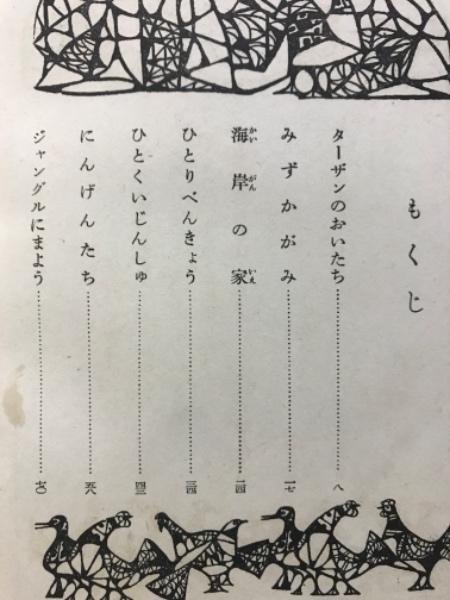 もくじ
ターザンのおいたち……………………八
みずかがみ……………………一七
かい がん いえ
海岸の家……………………二四
ひとりべんきょう……………………三四
ひとくいじんしゅ……………………四三
にんげんたち……………………五八
ジャングルにまよう……………………七〇